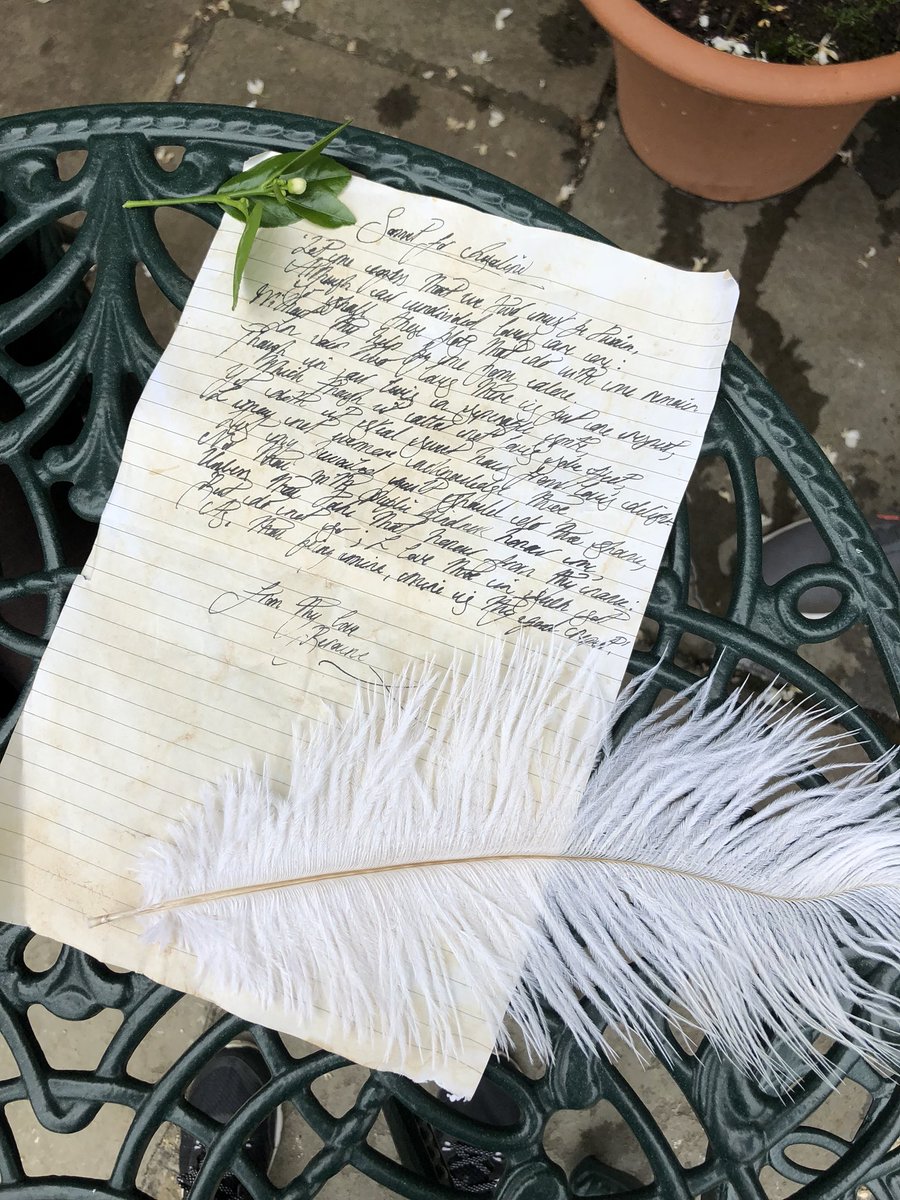 Sonnet for
Let me confess that we two must be twain,
Although our undivided loves are one:
So shall those blots that do with me remain
Without thy help by me borne alone
In our two loves there is but one respect,
Though in our lives a separable spite
Which though it alter not love's sole effect
Yet doth it steal sweet hours from love's delight
I may not evermore acknowledge thee
Lest my bewailed guilt should do thee shame,
Nor thou with public kindness honour me,
Unless thou take that honour from thy name:
But do not so; I love thee in such sort
As thou being mine, mine is thy good report
From thy love